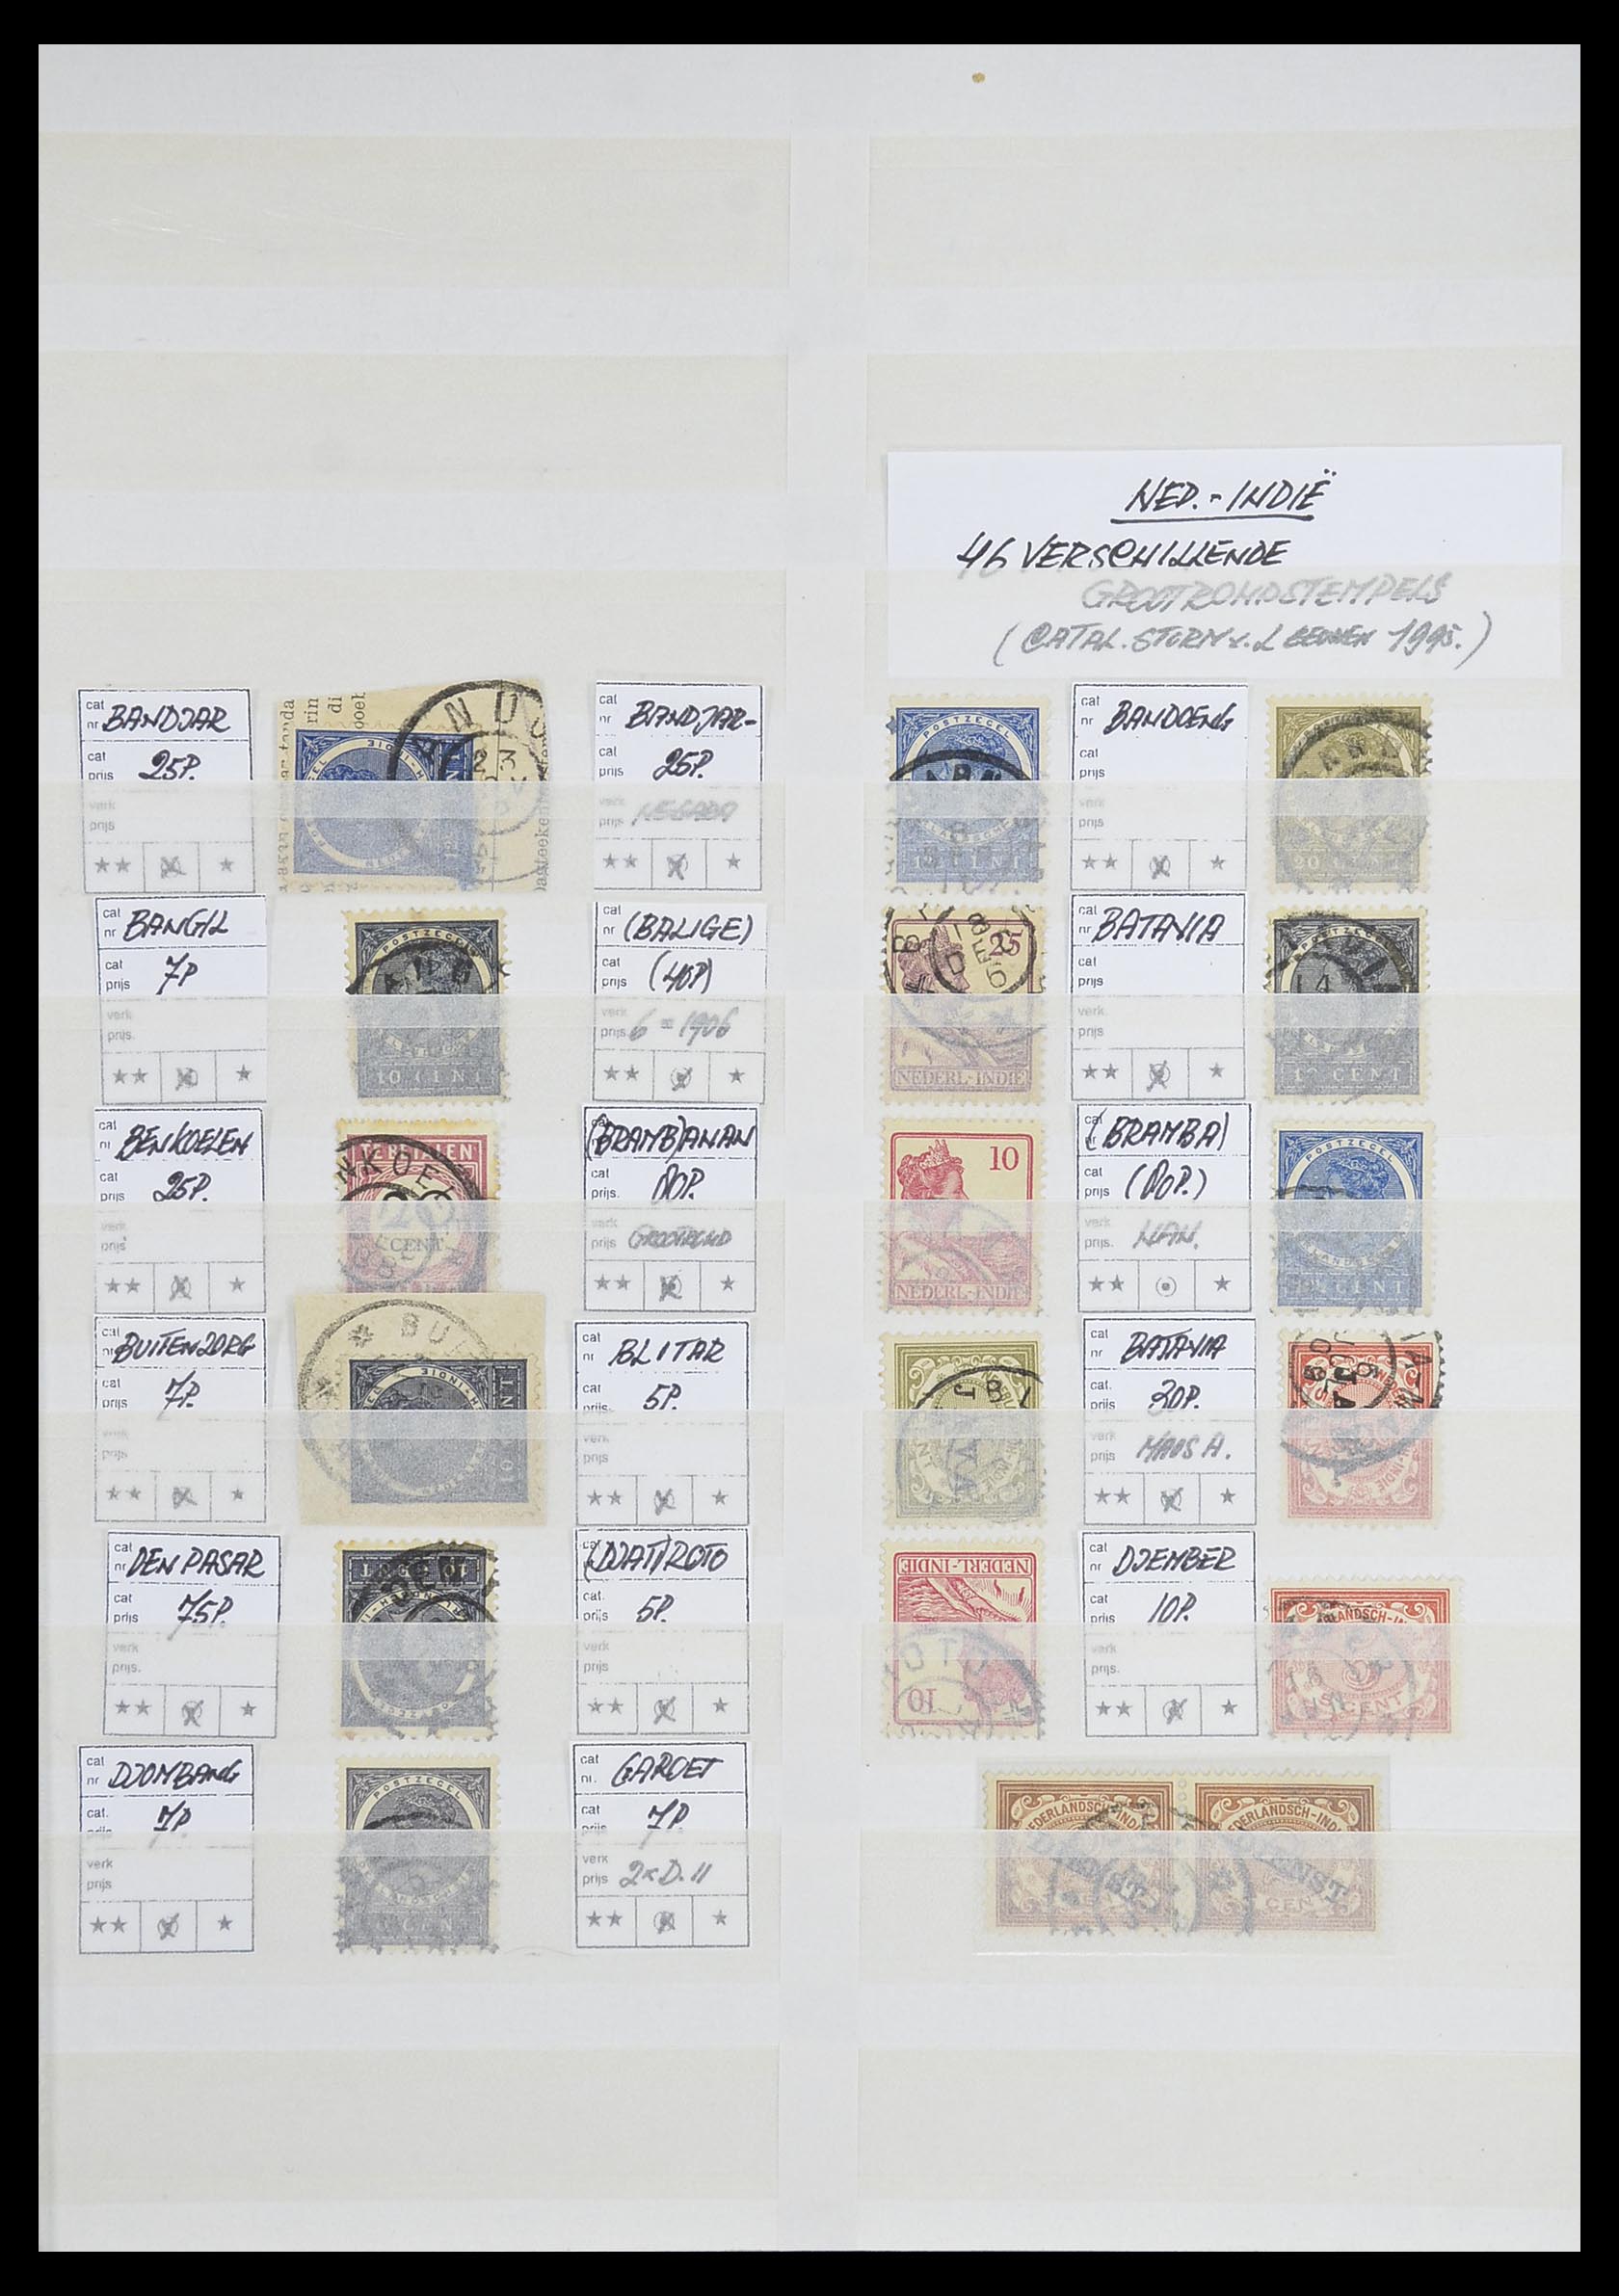 NED.-INDIË
46 VERSCHILLENDE
GROOTRONDSTEMPELS
(CATAL. STORM v. LEEUWEN 1995.)
cat nr BANDJAR
cat prijs 25P.
verk prijs
cat nr BANDJAR-
cat prijs 25P.
verk prijs NEGARA
POSTZEGEL
12½ CENT
cat nr BANDOENG
cat prijs
verk prijs
20 CENT
cat nr BANGIL
cat prijs 7P
verk prijs.
POSTZEGEL
10 CENT
cat nr (BALIGE)
cat prijs (40P)
verk prijs. 6=1906
25
NEDERL-INDIE
cat nr BATAVIA
cat prijs
verk prijs
POSTZEGEL
CENT
cat nr BENKOELEN
cat prijs 25P.
verk prijs
TE BETALEN
NKOEL
20
CENT
cat nr (BRAMB)ANAN
cat prijs. 80P.
verk prijs GROOTROND
10
NEDERL-INDIE
cat nr (BRAMBA)
cat prijs (80P.)
verk prijs. NAN.
POSTZEGEL
CENT
cat nr BUITENZORG
cat prijs 7P.
verk prijs
BU
cat nr BLITAR
cat prijs. 5P.
verk prijs
cat nr BATAVIA
cat. prijs 30P.
verk prijs MAOS A.
cat nr DEN PASAR
cat prijs 75P.
verk prijs.
DEN
cat nr (DJATI)ROTO
cat. prijs 5P.
verk prijs
NEDERL-INDIE
10
cat nr DJEMBER
cat prijs 10P.
verk prijs.
5 CENT
cat nr DJOMBANG
cat. prijs 7P
verk prijs
POSTZEGEL
CENT
cat nr. GAROET
cat prijs 7P
verk prijs 2xD.11
DIENST
DIENST